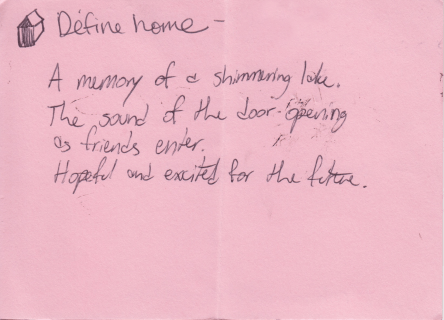 Define home -
A memory of a shimmering lake.
The sound of the door opening
as friends enter.
Hopeful and excited for the future.